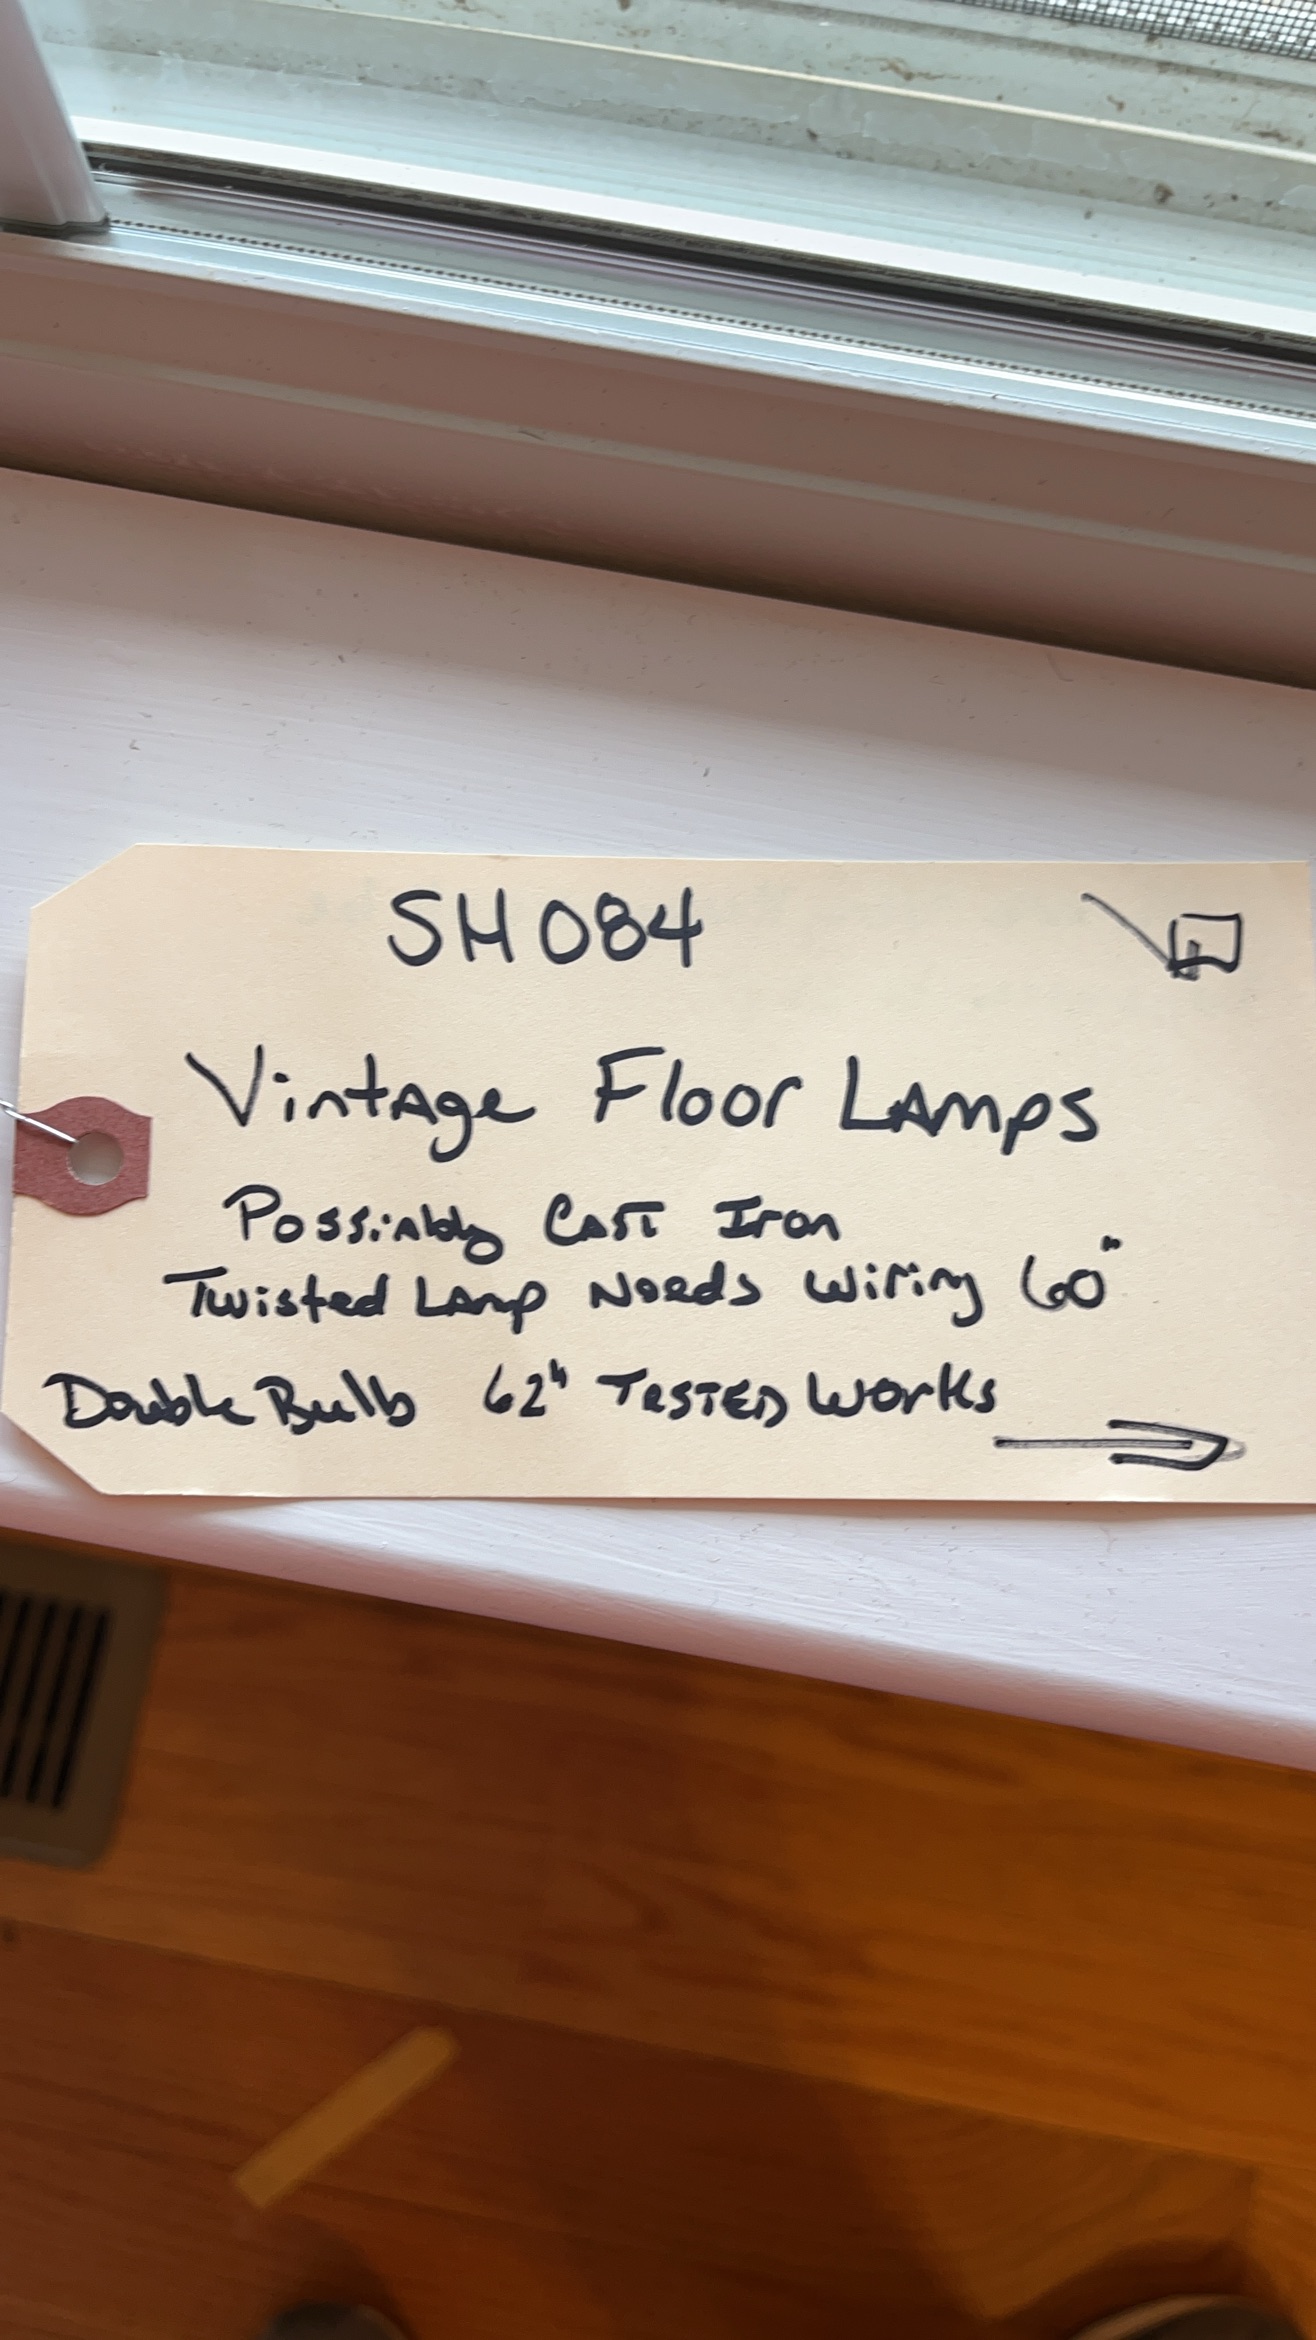 SH084
Vintage Floor Lamps
Possinbly Cast Iron
Twisted Lamp Needs Wiring 60"
Double Bulb 62" Tested Works